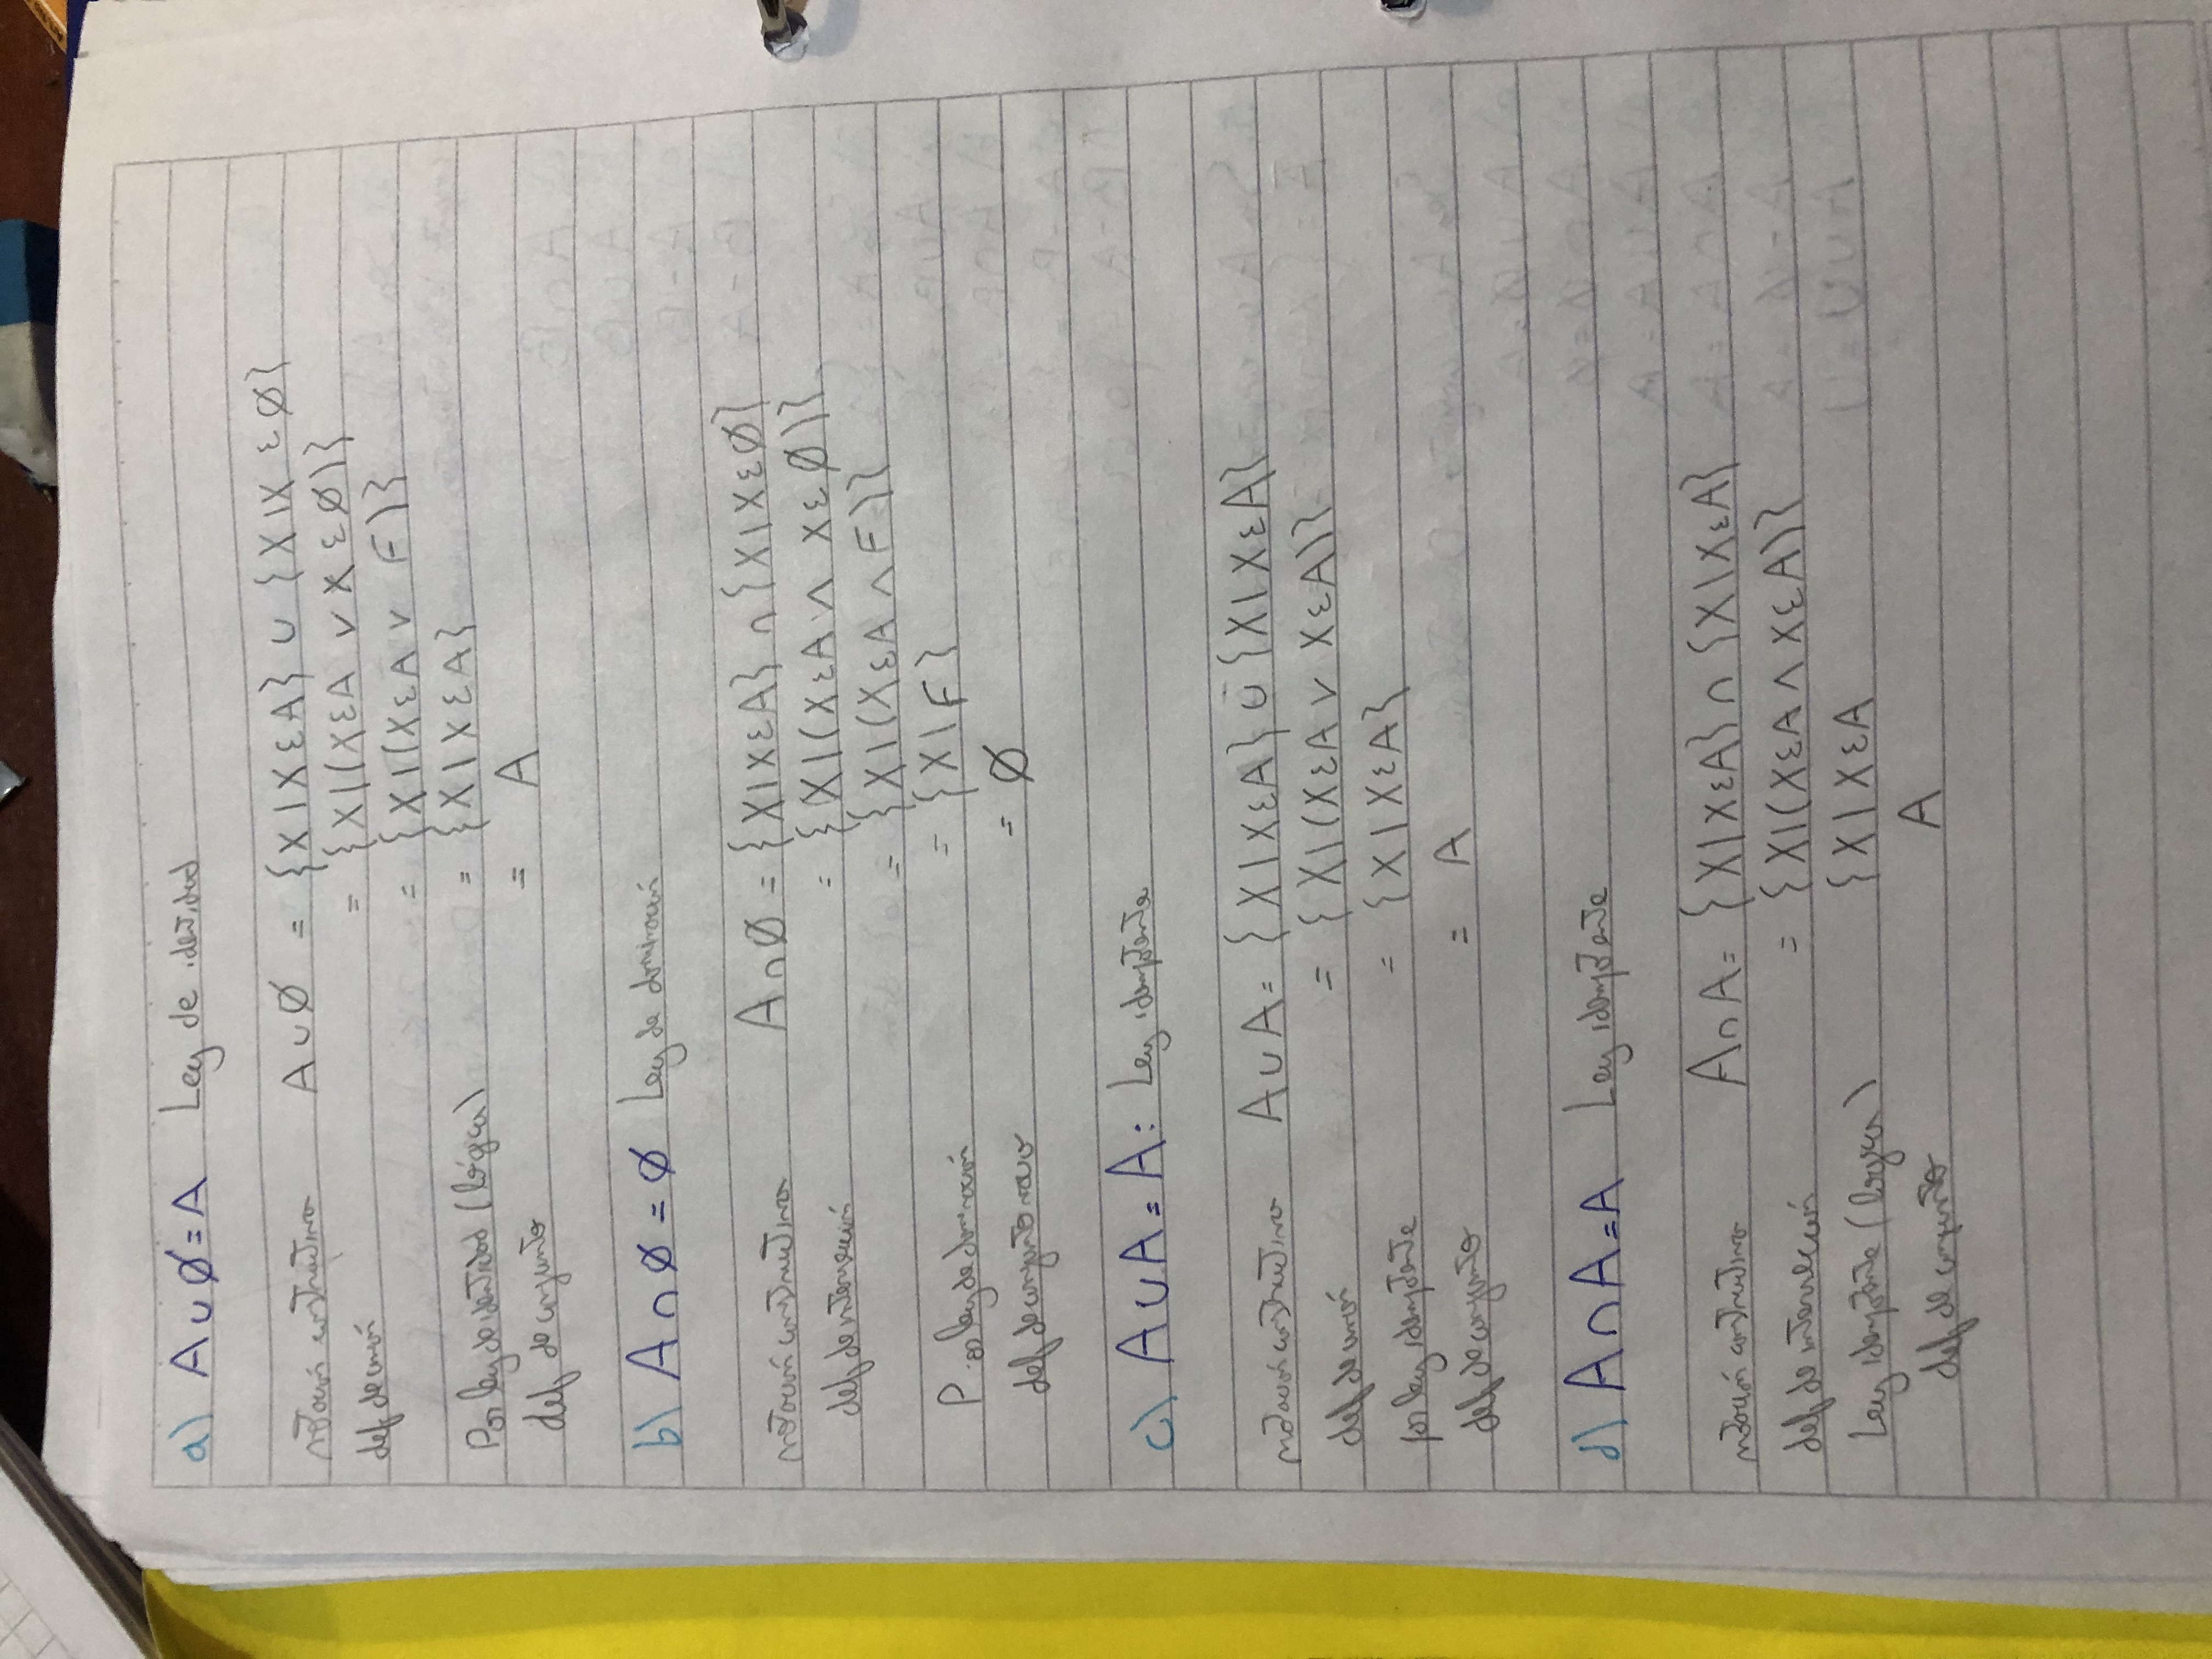 a) A∪∅=A Ley de identidad
notación constructiva A∪∅ = {X|XεA} ∪ {X|X ε∅}
def de unión = {X|(XεA ∨ X ε∅)}
= {X|(XεA ∨ F)}
Por ley de identidad (lógica) = {X|XεA}
def de conjunto = A
b) A∩∅=∅ Ley de dominación
notación constructiva A∩∅ = {X|XεA} ∩ {X|Xε∅}
def de intersección = {X|(XεA ∧ Xε∅)}
= {X|(XεA ∧ F)}
Por ley de dominación = {X|F}
def de conjunto vacio = ∅
c) A∪A=A: Ley idempotente
notación constructiva A∪A= {X|XεA} ∪ {X|XεA}
def de unión = {X|(XεA ∨ XεA)}
por ley idempotente = {X|XεA}
def de conjunto = A
d) A∩A=A Ley idempotente
notación constructiva A∩A= {X|XεA} ∩ {X|XεA}
def de intersección = {X|(XεA ∧ XεA)}
Ley idempotente (lógica) {X|XεA
def de conjunto A